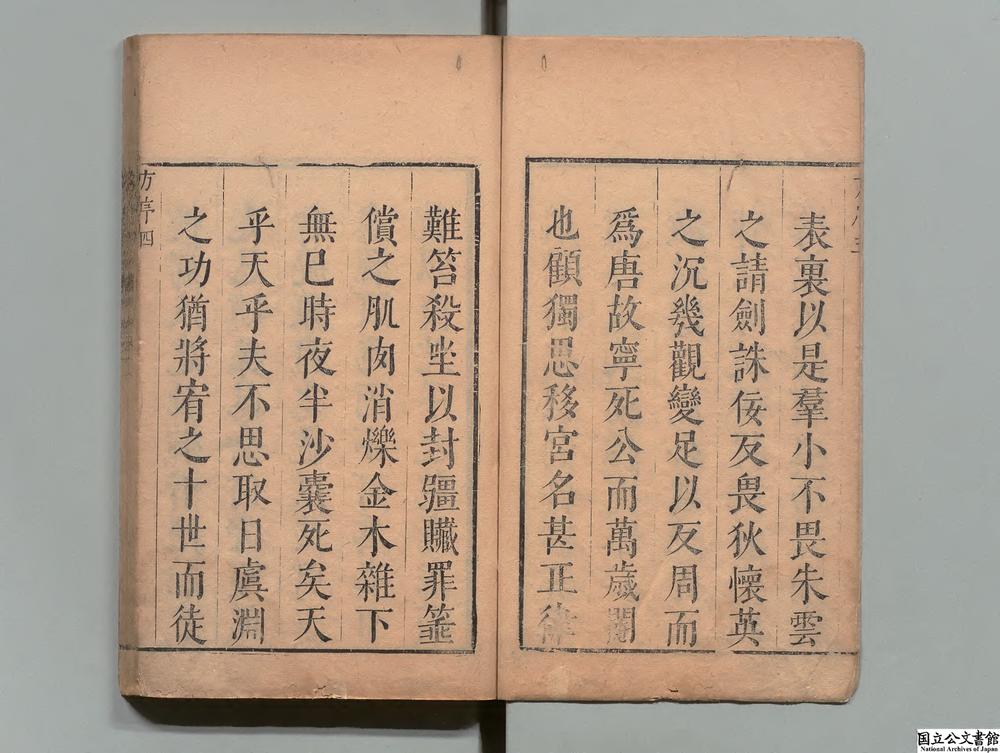 表裏以是羣小不畏朱雲
之請劍誅佞反畏狄懷英
之沉幾觀變足以反周而
爲唐故寧死公而萬歲閹
也顧獨思移宮名甚正律
難笞殺坐以封疆贓罪箠
償之肌肉消爍金木雜下
無已時夜半沙囊死矣天
乎天乎夫不思取日虞淵
之功猶將宥之十世而徒
方序四
国立公文書館
National Archives of Japan